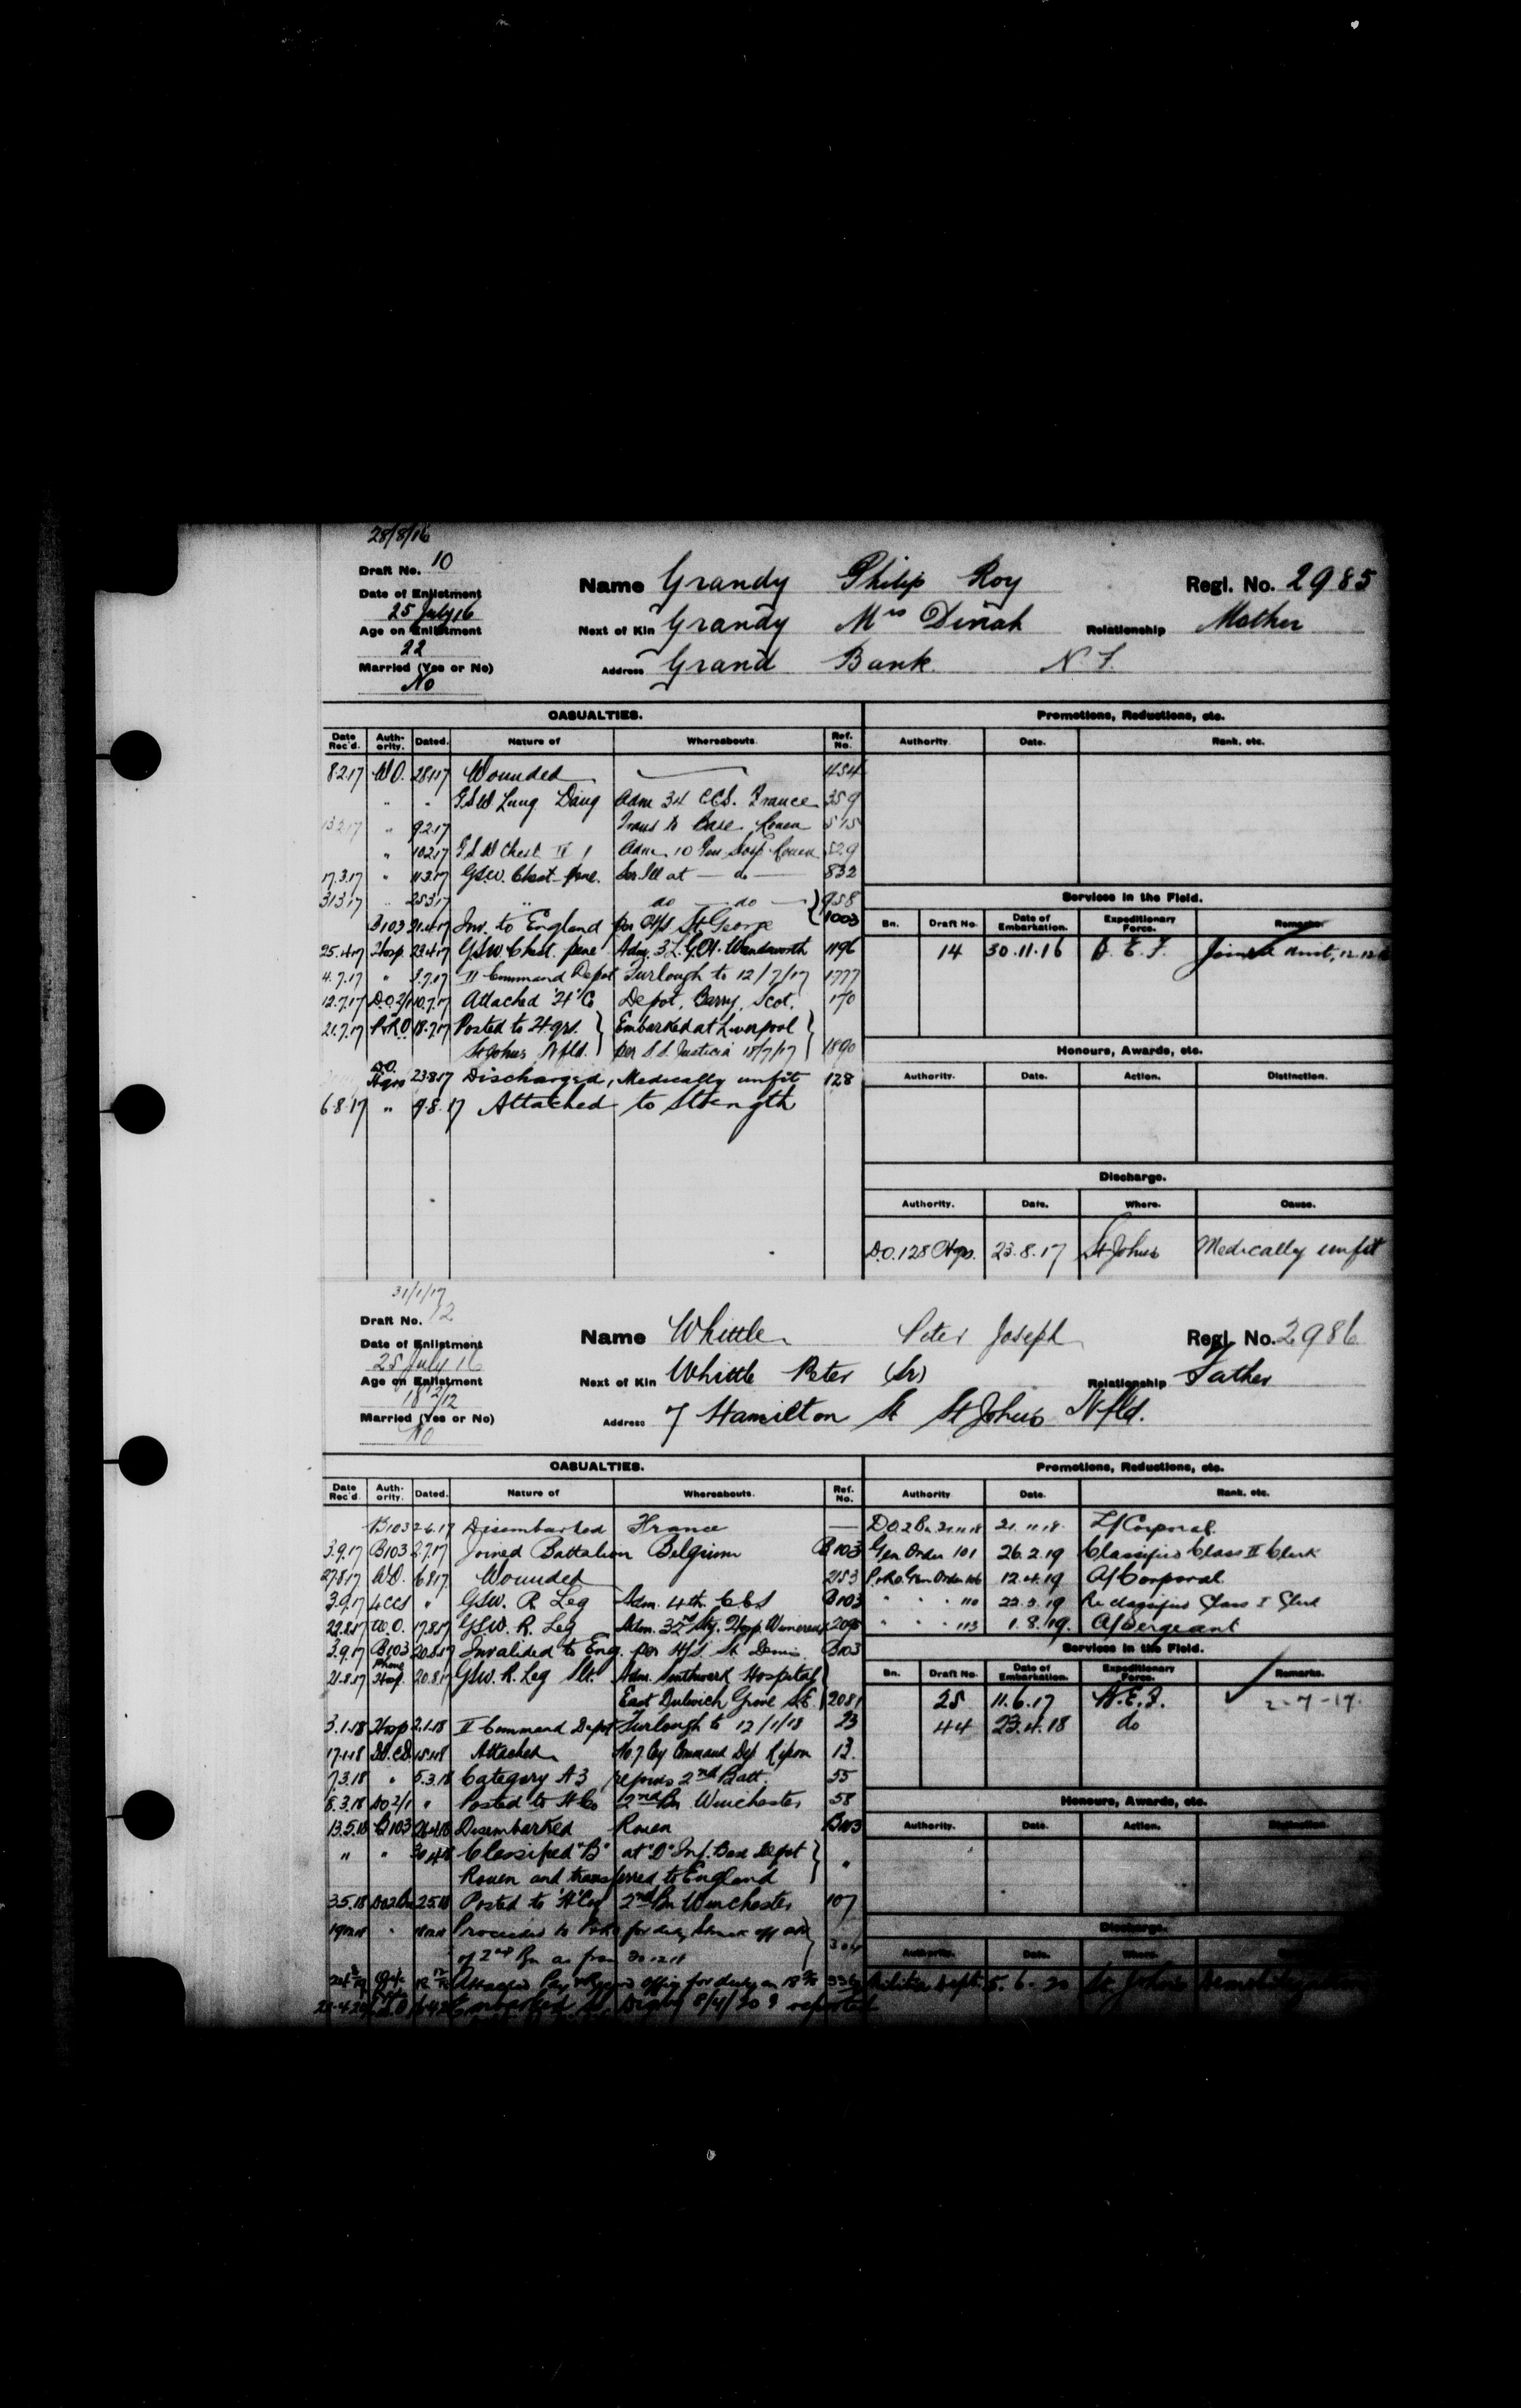 28/8/16
Draft No. 10
Date of Enlistment
25 July 16
Age on Enlistment
22
Married (Yes or No)
No
Name Grandy Philip Roy Regl. No. 2985
Next of Kin Grandy Mrs Dinah Relationship Mother
Address Grand Bank N F.
CASUALTIES.
Date Rec'd. Authority. Dated. Nature of Whereabouts. Ref. No.
8.2.17 W.O. 28.1.17 Wounded — 454
" " G.S.W Lung Adm 34 CCS. France 359
13.2.17 " 9.2.17 Trans to Base Rouen 515
" 10.2.17 G.S.W Chest Adm. 10 Gen Hosp. Rouen 529
17.3.17 " 11.3.17 G.S.W. Chest pene. Ser Ill at — do — 832
31.3.17 " 25.3.17 " do — do — 958
B103 21.4.17 Inv. to England per H/S St George 1003
25.4.17 Hosp. 23.4.17 GSW Chest. pene Adm. 3 L.G.H. Wandsworth 1196
4.7.17 " 2.7.17 II Command Depot Furlough to 12/7/17 1777
12.7.17 D.O 2/1 10.7.17 Attached 'H' Co Depot, Barry, Scot. 170
21.7.17 P&R.O 18.7.17 Posted to Hqrs. Embarked at Liverpool
St Johns Nfld. per S.S. Justicia 18/7/17 1890
D.O. Hqrs 23.8.17 Discharged, Medically unfit 128
6.8.17 " 9.8.17 Attached to Strength
Promotions, Reductions, etc.
Authority. Date. Rank, etc.
Services in the Field.
Bn. Draft No. Date of Embarkation. Expeditionary Force. Remarks.
14 30.11.16 B.E.F. Joined unit, 12.12.16
Honours, Awards, etc.
Authority. Date. Action. Distinction.
Discharge.
Authority. Date. Where. Cause.
D.O. 128 Hqrs. 23.8.17 St Johns Medically unfit
31/1/17
Draft No. 12
Date of Enlistment
25 July 16
Age on Enlistment
18 2/12
Married (Yes or No)
No
Name Whittle Peter Joseph Regl. No. 2986
Next of Kin Whittle Peter (Sr) Relationship Father
Address 7 Hamilton St St Johns Nfld.
CASUALTIES.
Date Rec'd. Authority. Dated. Nature of Whereabouts. Ref. No.
B103 2.6.17 Disembarked France —
3.9.17 B103 2.7.17 Joined Battalion Belgium B103
27.8.17 W.O. 6.8.17 Wounded 2153
3.9.17 4 CCS " GSW. R Leg Adm. 4th C.C.S B103
22.8.17 W.O. 17.8.17 GSW. R. Leg Adm. 32nd Sty. Hosp Wimereux 2095
3.9.17 B103 20.8.17 Invalided to Eng. per H/S St Denis B103
21.8.17 Phone Hosp 20.8.17 GSW. R. Leg Slt. Adm. Southwark Hospital
East Dulwich Grove S.E. 2081
3.1.18 Hosp 2.1.18 II Command Depot Furlough to 12/1/18 23
17.1.18 15.1.18 Attached No. 7 Coy Command Dep. Ripon 13.
7.3.18 " 5.3.18 Category A3 rejoins 2nd Batt. 55
8.3.18 DO 2/1 " Posted to H Co 2nd Bn Winchester 58
13.5.18 B103 26.4.18 Disembarked Rouen B103
" " 30.4.18 Classified "B" at "D" Inf. Base Depot
Rouen and transferred to England "
3.5.18 2.5.18 Posted to 'H' Coy 2nd Bn Winchester 107
Proceeded to for duty Struck off
of 2nd Bn as from
Attached Pay & Record Office for duty
Embarked Digby 8/4/20 & reported
Promotions, Reductions, etc.
Authority Date. Rank, etc.
DO. 2 Bn. 21.11.18 21.11.18 L/Corporal
Gen Order 101 26.2.19 Classified Class II Clerk
P&RO. Gen Order 106 12.4.19 A/Corporal
" " " 110 22.5.19 Re classified Class I Clerk
" " " 113 1.8.19. A/Sergeant
Services in the Field.
Bn. Draft No. Date of Embarkation. Expeditionary Force. Remarks.
25 11.6.17 B.E.F. 2-7-17.
44 23.4.18 do
Honours, Awards, etc.
Authority. Date. Action. Distinction.
Discharge.
Authority. Date. Where.
Militia Dept. 5.6.20 St. Johns Demobilization